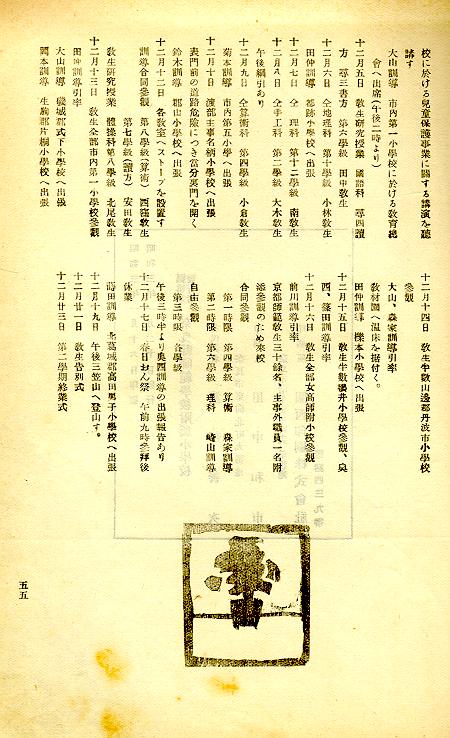 校に於ける兒童保護事業に關する講演を聽
講す
大山訓導 市內第一小學校に於ける敎育總
會へ出席(午後二時より)
十二月五日 敎生硏究授業 國語科 尋四讀
方 尋三書方 第六學級 田中敎生
十二月六日 仝地理科 第十學級 小林敎生
田仲訓導 都跡小學校へ出張
十二月七日 仝 理科 第十二學級 南敎生
十二月八日 仝手工科 第二學級 大木敎生
午後綱引あり
十二月九日 仝算術科 第四學級 小倉敎生
菊本訓導 市內第五小學へ出張
十二月十日 渡部主事名柄小學校へ出張
表門前の道路危險につき當分裏門を開く
鈴木訓導 郡山小學校へ出張
十二月十二日 各敎室へストーブを設置す
訓導合同參觀 第八學級(算術) 西窪敎生
第七學級(讀方) 安田敎生
敎生硏究授業 體操科第八學級 北尾敎生
十二月十三日 敎生全部市內第一小學校參觀
田仲訓導引率
大山訓導 磯城郡式下小學校へ出張
岡本訓導 生駒郡片桐小學校へ出張
十二月十四日 敎生半數山邊郡丹波市小學校
參觀
大山、森家訓導引率
敎材園へ溫床を据付く。
田仲訓導 櫟本小學校へ出張
十二月十五日 敎生半數櫻井小學校參觀、奧
西、篠田訓導引率
十二月十六日 敎生全部女高師附小校參觀
前川訓導引率。
京都師範敎生三十餘名、主事外職員一名附
添參觀のため來校
合同參觀
第一時限 第四學級 算術 森家訓導
第二時限 第六學級 理科 峰山訓導
自由參觀
第三時限 各學級
午後三時半より奧西訓導の出張報告あり
十二月十七日 春日おん祭 午前九時參拜後
休業
十二月十九日 午後三笠山へ登山す。
蒔田訓導 北葛城郡高田男子小學校へ出張
十二月廿一日 敎生告別式
十二月廿三日 第二學期終業式
五五